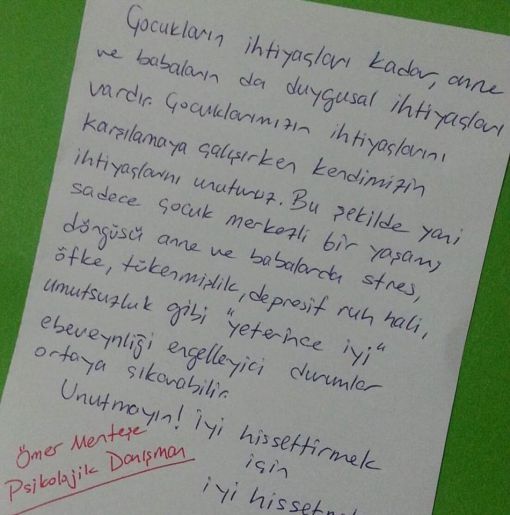 Çocukların ihtiyaçları kadar, anne
ve babaların da duygusal ihtiyaçları
vardır. Çocuklarımızın ihtiyaçlarını
karşılamaya çalışırken kendimizin
ihtiyaçlarını unuturuz. Bu şekilde yani
sadece çocuk merkezli bir yaşam
döngüsü anne ve babalarda stres,
öfke, tükenmişlik, depresif ruh hali,
umutsuzluk gibi "yeterince iyi"
ebeveynliği engelleyici durumlar
ortaya çıkarabilir.
Unutmayın! İyi hissettirmek
için
iyi
Ömer Menteşe
Psikolojik Danışman